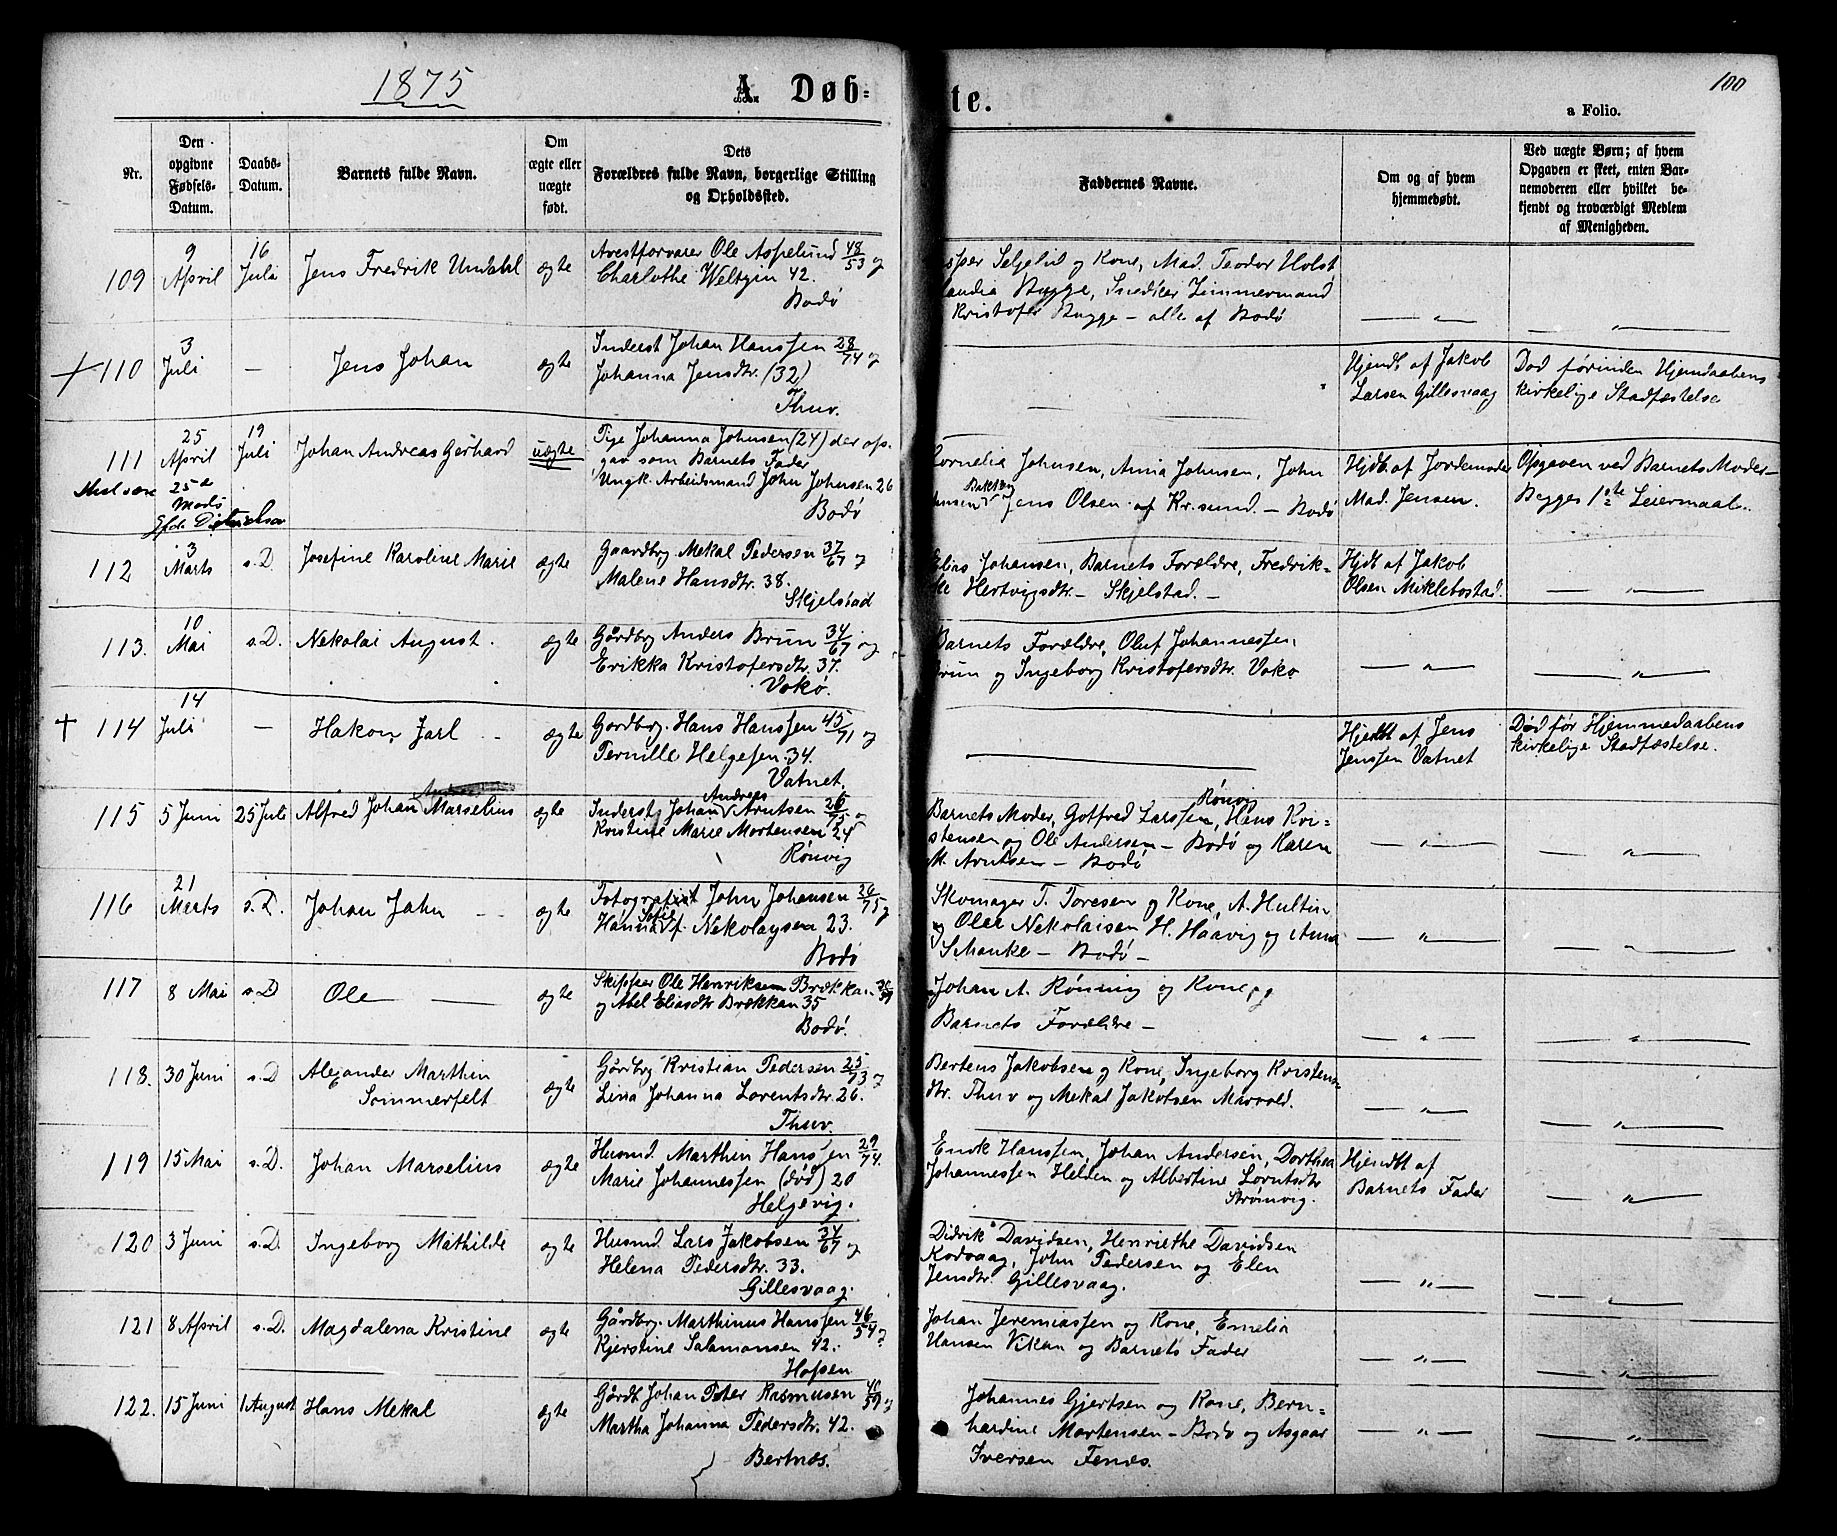 1875
A. Døb-
te.
100
a Folio.
Nr.
Den
opgivne
Fødsels-
Datum.
Daabs-
Datum.
Barnets fulde Navn.
Om
ægte eller
uægte
født.
Dets
Forældres fulde Navn, borgerlige Stilling
og Opholdssted.
Faddernes Navne.
Om og af hvem
hjemmedøbt.
Ved uægte Børn; af hvem
Opgaven er skeet, enten Bar-
nemoderen eller hvilket be-
kjendt og troværdigt Medlem
af Menigheden.
109
9
April
16
Juli
Jens Fredrik Undahl
ægte
Arestforvarer Ole Aspelund 48/53 og
Charlothe Weltzin 42.
Bodø
Seljelid og Kone, Mad. Teodor Holst
Bugge, Snedker Zimmermand
Kristofer Bugge - alle af Bodø
— " —
— " —
+ 110
3
Juli
—
Jens Johan
ægte
Inderst Johan Hanssen 28/74 og
Johanna Jensdtr. (32)
Thuv.
—
Hjemdt af Jakob
Larsen Gillesvaag
Død førinden Hjemdaabens
kirkelige Stadfæstelse
111
25
April
19
Juli
Johan Andreas Gerhard
uægte
Pige Johanna Johnsen (24) der op-
gav som Barnets Fader
Ungk. Arbeidsmand John Johnsen 26
Bodø
Cornelia Johnsen, Anna Johnsen, John
Jens Olsen af Kr.sund. - Bodø
Hjdt af Jordemoder
Mad. Jensen.
Opgaven ved Barnets Moder -
Begges 1ste Leiermaal.
112
3
Marts
s.D.
Josefine Karoline Marie
ægte
Gaardbrg. Mekal Pedersen 37/67 og
Malene Hansdtr. 38.
Skjelstad
Elias Johansen, Barnets Forældre, Fredrik-
ke Hertvigsdtr - Skjelstad. -
Hjdt af Jakob
Olsen Miklebostad.
— " —
113.
10
Mai
s.D.
Nekolai August.
ægte
Gårdbrg Anders Brun 34/67 og
Erikka Kristofersdtr. 37.
Vokø.
Barnets Forældre, Oluf Johannessen
Brun og Ingeborg Kristofersdtr. Vokø
— " —
— " —
+ 114
14
Juli
—
Hakon Jarl
ægte
Gardbrg. Hans Hanssen 45/71 og
Pernille Helgesen 34.
Vatnet.
—
Hjemdt af Jens
Jenssen Vatnet
Død før Hjemmedaabens
kirkelige Stadfæstelse.
115
5 Juni
25 Juli
Alfred Johan Marselius
ægte
Andreas
Inderst Johan Arntsen 26/75 og
Kristine Marie Mortensen 24
Rønvig
Rønvig
Barnets Moder, Gotfred Larssen, Hans Kri-
stensen og Ole Andersen - Bodø og Karen
M. Arntsen - Bodø
— " —
— " —
116
21
Marts
s.D.
Johan John
ægte
Fotografist John Johansen 26/75 og
Sofie
Hanna f. Nekolaysen 23.
Bodø
Skomager T. Toresen og Kone, A. Hultin
og Oler Nekolaisen H. Haavig og Anna
Schanke - Bodø -
— " —
— " —
117
8 Mai
s.D
Ole
ægte
Skipper Ole Henriksen Brækkan
og Abel Eliasdtr Brækkan 35
Bodø.
Johan A. Rønning og Kone,
Barnets Forældre -
— " —
— " —
118.
30 Juni
s.D
Alexander Marthin
Sommerfelt
ægte
Gårdbrg Kristian Pedersen 25/73 og
Lina Johanna Lorentsdtr. 26.
Thuv.
Bertens Jakobsen og Kone, Ingeborg Kristens-
dtr. Thuv og Mekal Jakobsen Misvold.
— " —
— " —
119
15 Mai
s.D.
Johan Marselius
ægte
Husmd. Marthin Hanssen 29/74.
Marie Johannessen (død) 20
Helgevig.
Enok Hanssen, Johan Andersen, Dorthea
Johannessen Helden og Albertine Lorntsdtr
Strømvig.
Hjemdt af
Barnets Fader
— " —
120
3 Juni
s.D.
Ingeborg Mathilde
ægte
Husmd. Lars Jakobsen 34/67 og
Helena Pedersdtr. 33.
Gillesvaag.
Didrik Davidsen, Henriethe Davidsen
Kodvaag, John Pedersen og Elen
Jensdtr. Gillesvaag.
— " —
— " —
121
8 April
s.D.
Magdalena Kristine
ægte
Gårdbrg. Marthinus Hanssen 46/54 og
Kjerstine Salamonsen 42.
Hopen
Johan Jeremiassen og Kone, Emelia
Hansen Vikan og Barnets Fader
— " —
— " —
122.
15 Juni
1 August
Hans Mekal
ægte
Gårdb Johan Peter Rasmusen 46/59 og
Martha Johanna Pedersdtr. 42.
Bertnes.
Johannes Gjertsen og Kone, Bern-
hardine Mortensen - Bodø og Asgaar
Iversen Fenes.
— " —
— " —